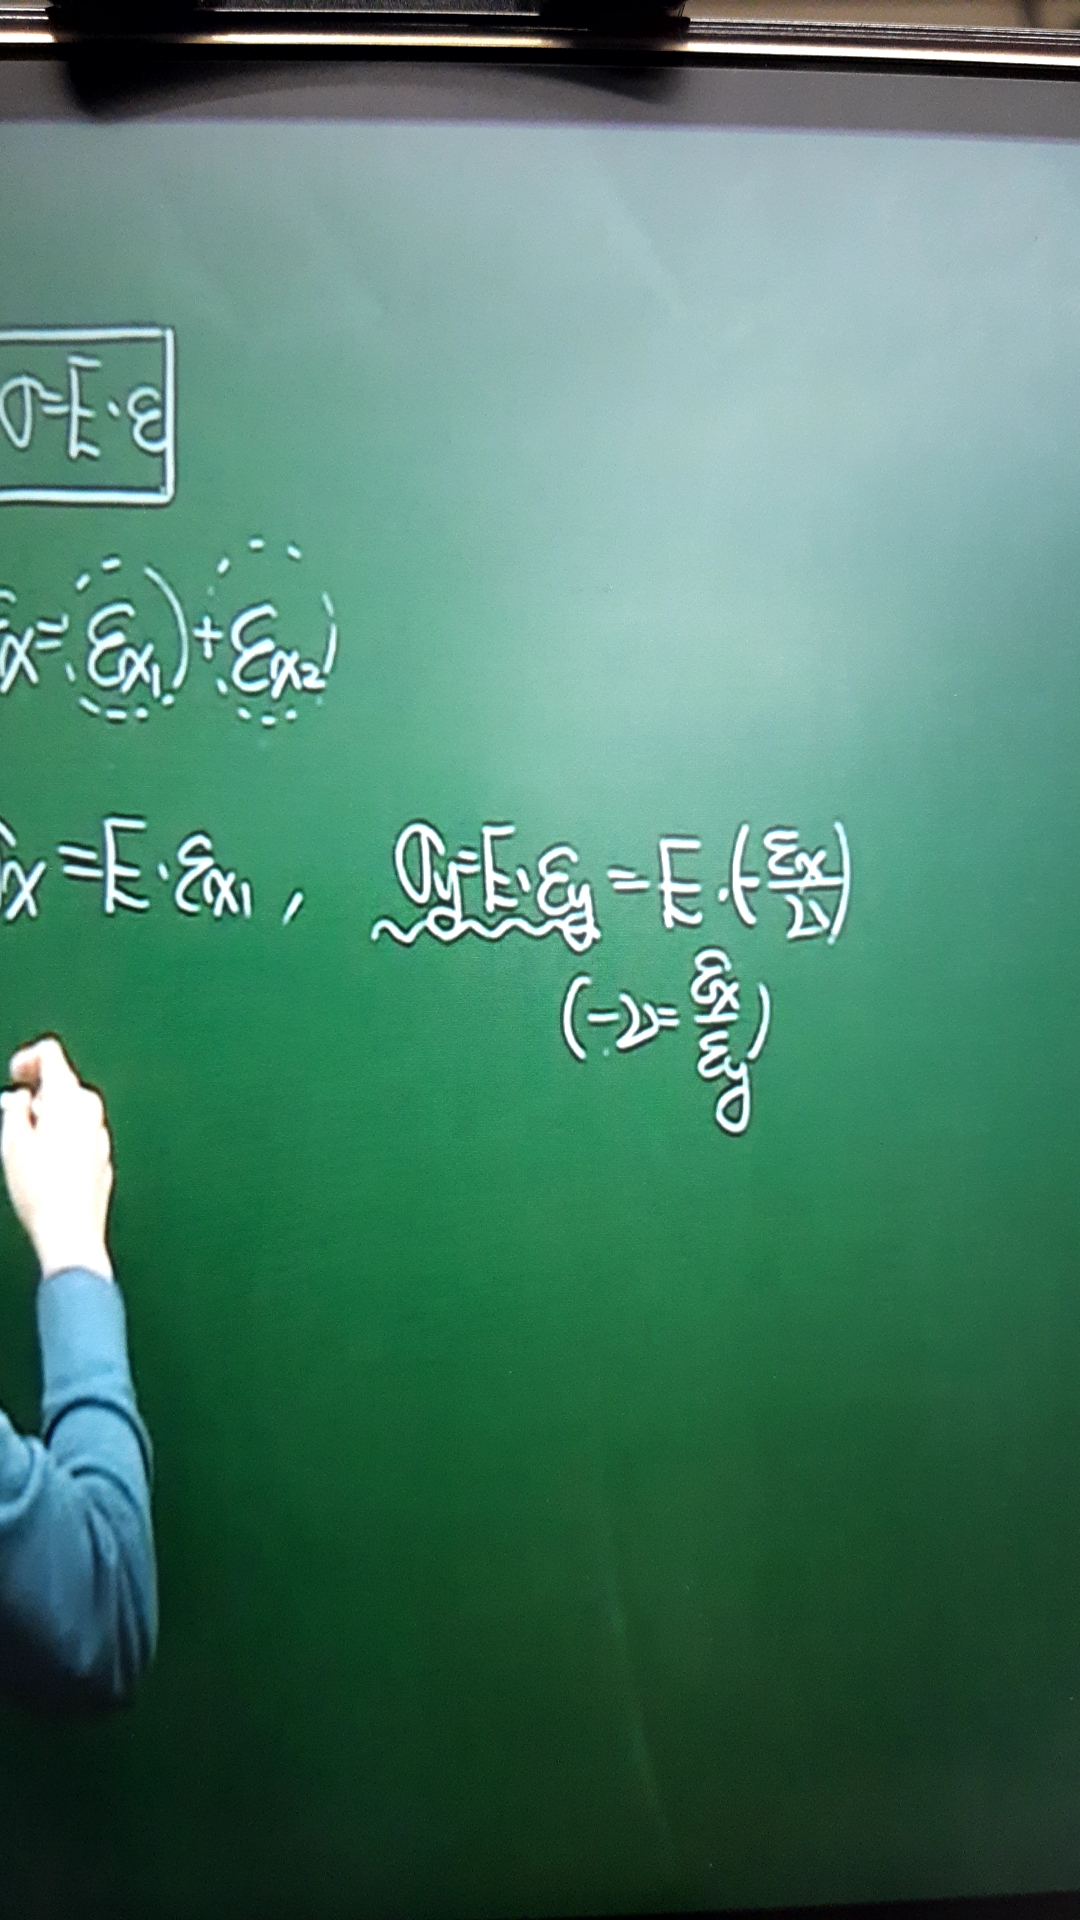 σ=E·ε
εx=εx₁+εx₂
σx=E·εx₁, σy=E·εy=E·(-εx/ν)
(-ν=εx/εy)